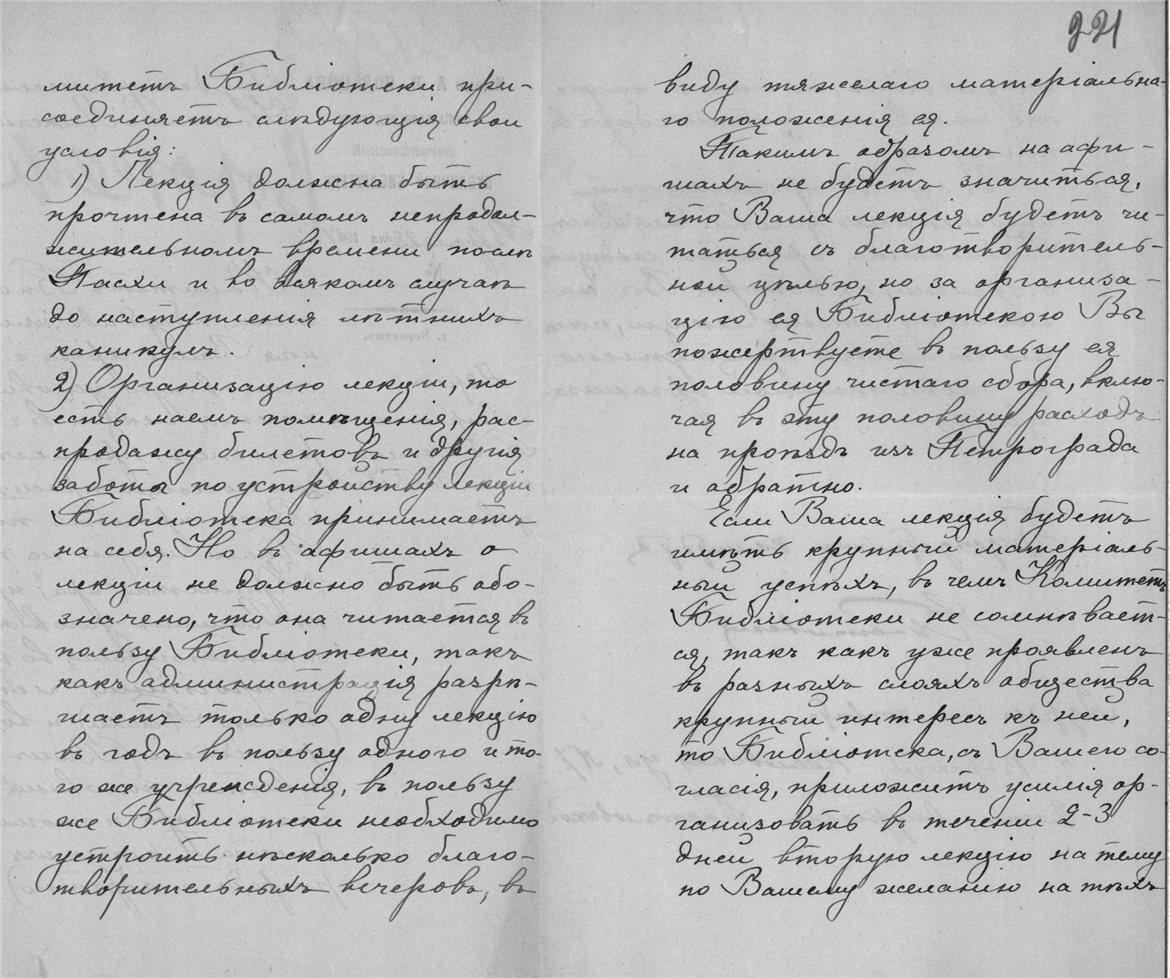 митетъ Библіотеки при-
соединяетъ слѣдующія свои
условія:
1) Лекція должна быть
прочтена въ самомъ непродол-
жительномъ времени послѣ
Пасхи и во всякомъ случаѣ
до наступленія лѣтнихъ
каникулъ.
2) Организацію лекціи, то
есть наемъ помѣщенія, рас-
продажу билетовъ и другія
заботы по устройству лекціи
Библіотека принимаетъ
на себя. Но въ афишахъ о
лекціи не должно быть обо-
значено, что она читается въ
пользу Библіотеки, такъ
какъ администрація разрѣ-
шаетъ только одну лекцію
въ годъ въ пользу одного и то-
го же учрежденія, въ пользу
же Библіотеки необходимо
устроить нѣсколько благо-
творительныхъ вечеровъ, въ
221
виду тяжелаго матеріальна-
го положенія ея.
Такимъ образомъ на афи-
шахъ не будетъ значиться,
что Ваша лекція будетъ чи-
таться съ благотворитель-
ной цѣлью, но за организа-
цію ея Библіотекою Вы
пожертвуете въ пользу ея
половину чистаго сбора, вклю-
чая въ эту половину расходъ
на проѣздъ изъ Петрограда
и обратно.
Если Ваша лекція будетъ
имѣть крупный матеріаль-
ный успѣхъ, въ чемъ Комитетъ
Библіотеки не сомнѣвает-
ся, такъ какъ уже проявленъ
въ разныхъ слояхъ общества
крупный интересъ къ ней,
то Библіотека, съ Вашего со-
гласія, приложитъ усилія ор-
ганизовать въ теченіи 2-3
дней вторую лекцію на тему
по Вашему желанію на тѣхъ